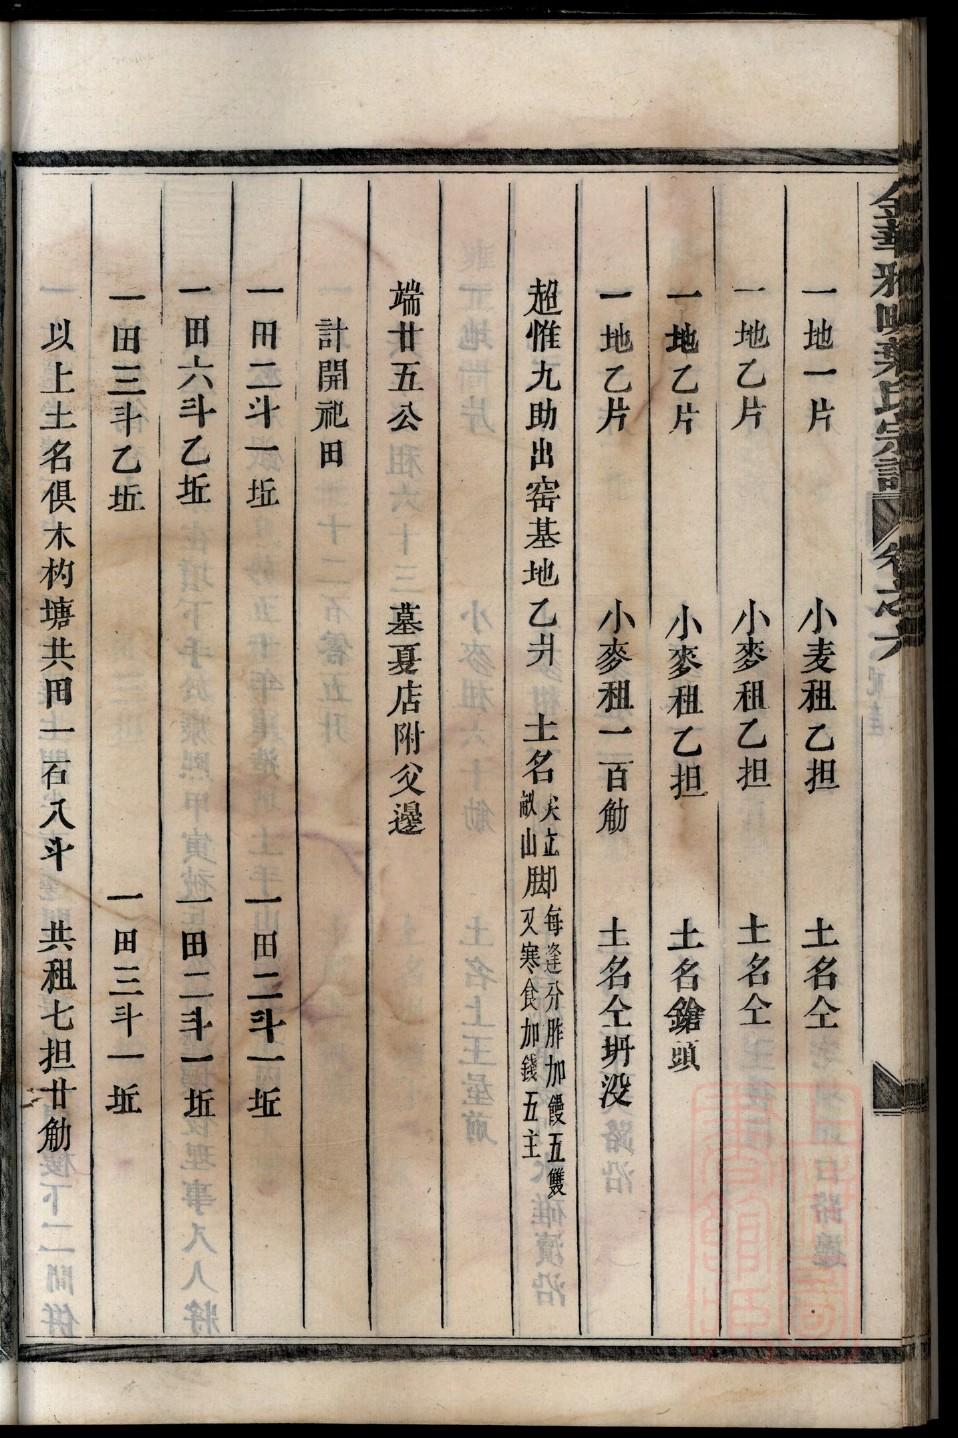 金華雅畈葉氏宗譜 卷之六
一地一片 小麦租乙担 土名仝
一地乙片 小麥租乙担 土名仝
一地乙片 小麥租乙担 土名鎗頭
一地乙片 小麥租一百觔 土名仝坍没
超惟九助出窑基地乙片 土名尖立即每逢分胙加饅五雙
畝山脚又寒食加錢五主
端廿五公 墓夏店附父邊
計開祀田
一田二斗一坵 一田二斗一坵
一田六斗乙坵 一田二斗一坵
一田三斗乙坵 一田三斗一坵
以上土名俱木杓塘共田一石八斗 共租七担廿觔